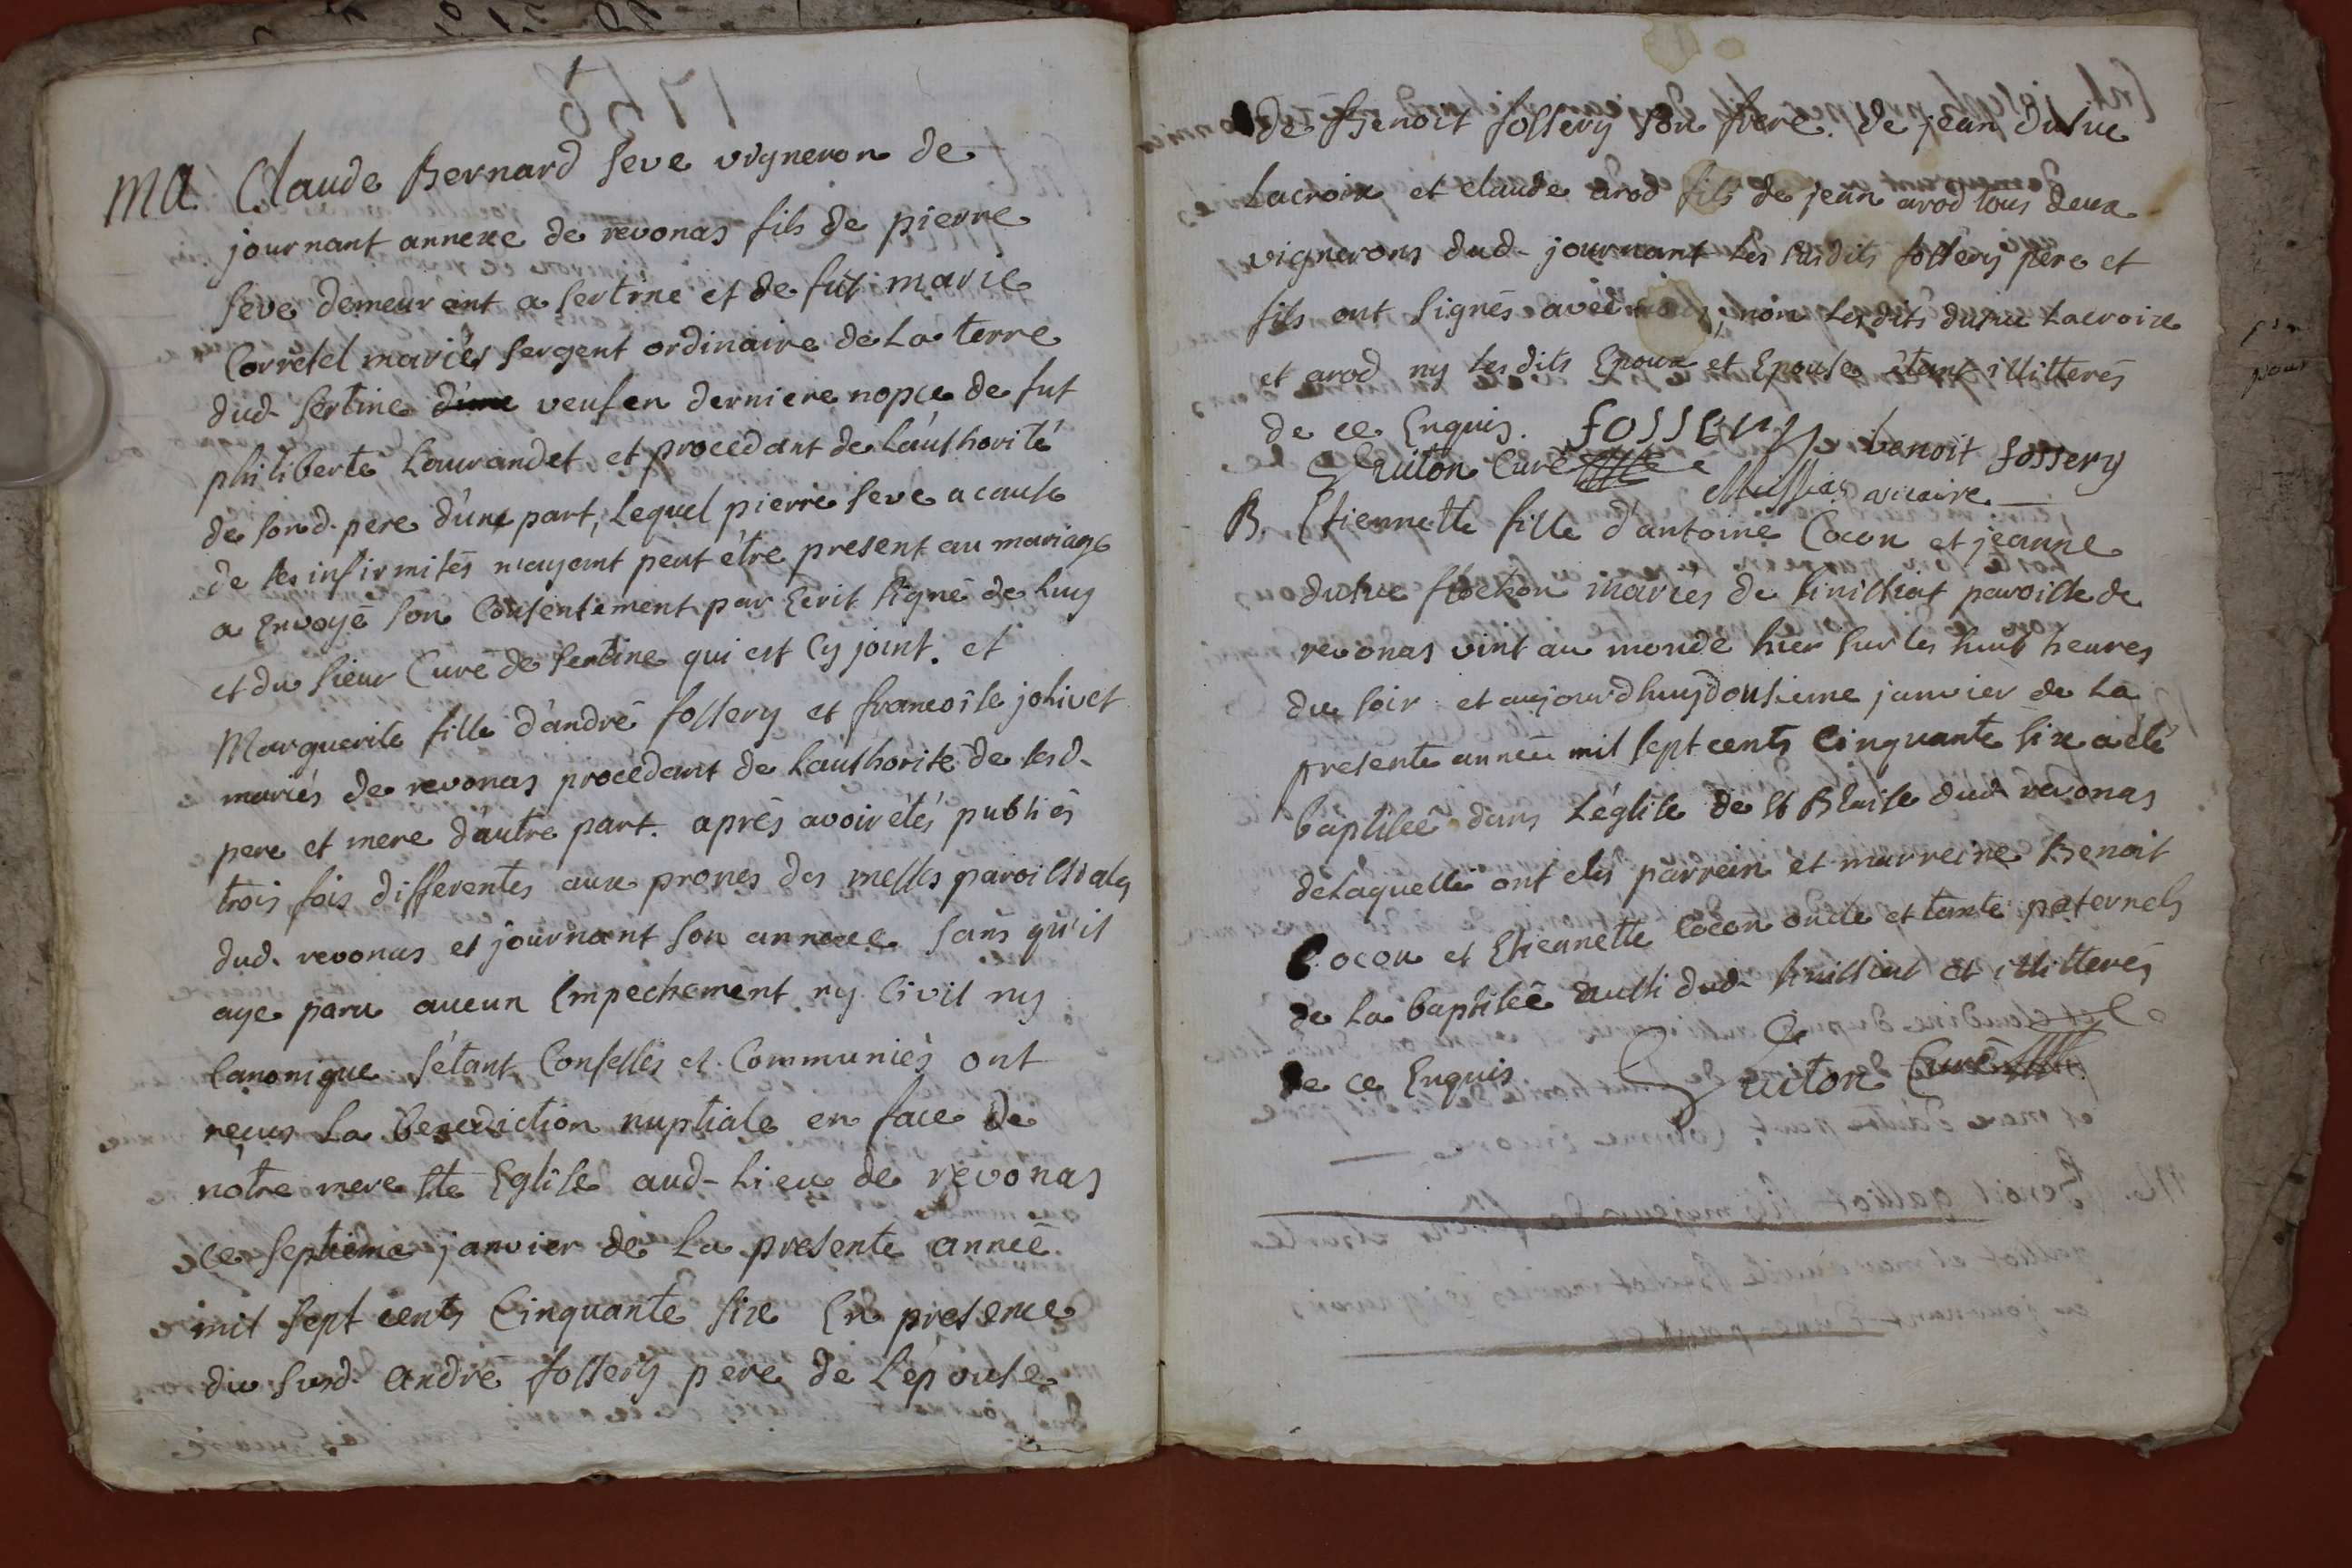 ma. Claude Bernard seve vigneron de
journant annexe de revonas fils de pierre
seve demeurant a sertine et de fut marie
Corretel mariés sergent ordinaire de La terre
dud. sertine veuf en derniere nopce de fut
philiberte Lourandet et procedant de L'authorité
de sond. pere d'une part, Lequel pierre seve a cause
de ses infirmités n'ayant peut étre present au mariage
a Envoyé son Consentement par Ecrit signé de Luy
et du sieur Curé de sertine qui est Cy joint. et
Marguerite fille d'andré fossery et francoise jolivet
mariés de revonas procedant de L'authorité de sesd.
pere et mere d'autre part. aprés avoir étés publiés
trois fois differentes aux prones des messes paroissiales
dud. revonas et journant son annexe sans qu'il
aye paru aucun Empechement ny Civil ny
Canonique s'étant Confessés et Communiés ont
reçus La benediction nuptiale en face de
nótre mere ste Eglise aud. Lieu de revonas
ce septieme janvier de La presente année
mil sept cents Cinquante six En presence
du susd. andré fossery pere de L'épouse
de Benoit fossery son frere. de jean dutuc
Lacroix et claude arod fils de jean arod tous deux
vignerons dud. journant Les susdits fossery pere et
fils ont signés avec nous, non Lesdits dutuc Lacroix
et arod ny Lesdits Epoux et Epouse étant illitterés
de ce Enquis. fossery benoit fossery
Curé vicaire
B. Etiennette fille d'antoine Cocon et jeanne
dutuc flochon mariés de paroisse de
revonas vint au monde hier sur les huit heures
du soir et aujourdhuy dousieme janvier de La
presente année mil sept cents Cinquante six a été
baptisée dans L'église de st Blaise dud. revonas
de Laquelle ont étés parrein et marreine Benoit
Cocon et Etiennette Cocon oncle et tante paternels
de La baptisée aussi dud. et illitterés
de ce Enquis Curé